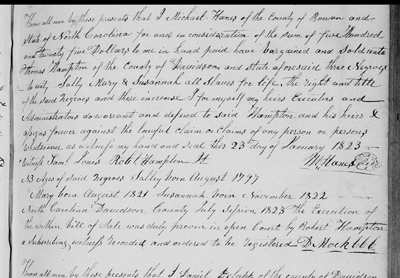 Know all men by these presents that I Michael Hanes of the County of Rowan and
State of North Carolina for and in consideration of the sum of five Hundred
and twenty five Dollars to me in hand paid have bargained and sold unto
Thomas Hampton of the County of Davidson and State aforesaid three Negroes
to wit Sally Mary & Susannah all Slaves for life, the right and title
of the said Negroes and these increase I for myself my heirs Executors and
Administrators do warrant and defend to said Hampton and his heirs &
assigns forever against the lawful claim or claims of any person or persons
Whatsoever as witness my hand and seal this 23rd day of January 1823
Witness Louis Robt Hampton Jt M. Hanes
NB Ages of said Negroes Sally born August 1797
Mary born August 1821 Susannah born November 1822
North Carolina Davidson County July Session 1823 The Execution of
the within bill of Sale was duly proven in open Court by Robert Hampton
a subscribing witness recorded and ordered to be registered D Mock
Know all men by these presents that I Daniel of the county of Davidson